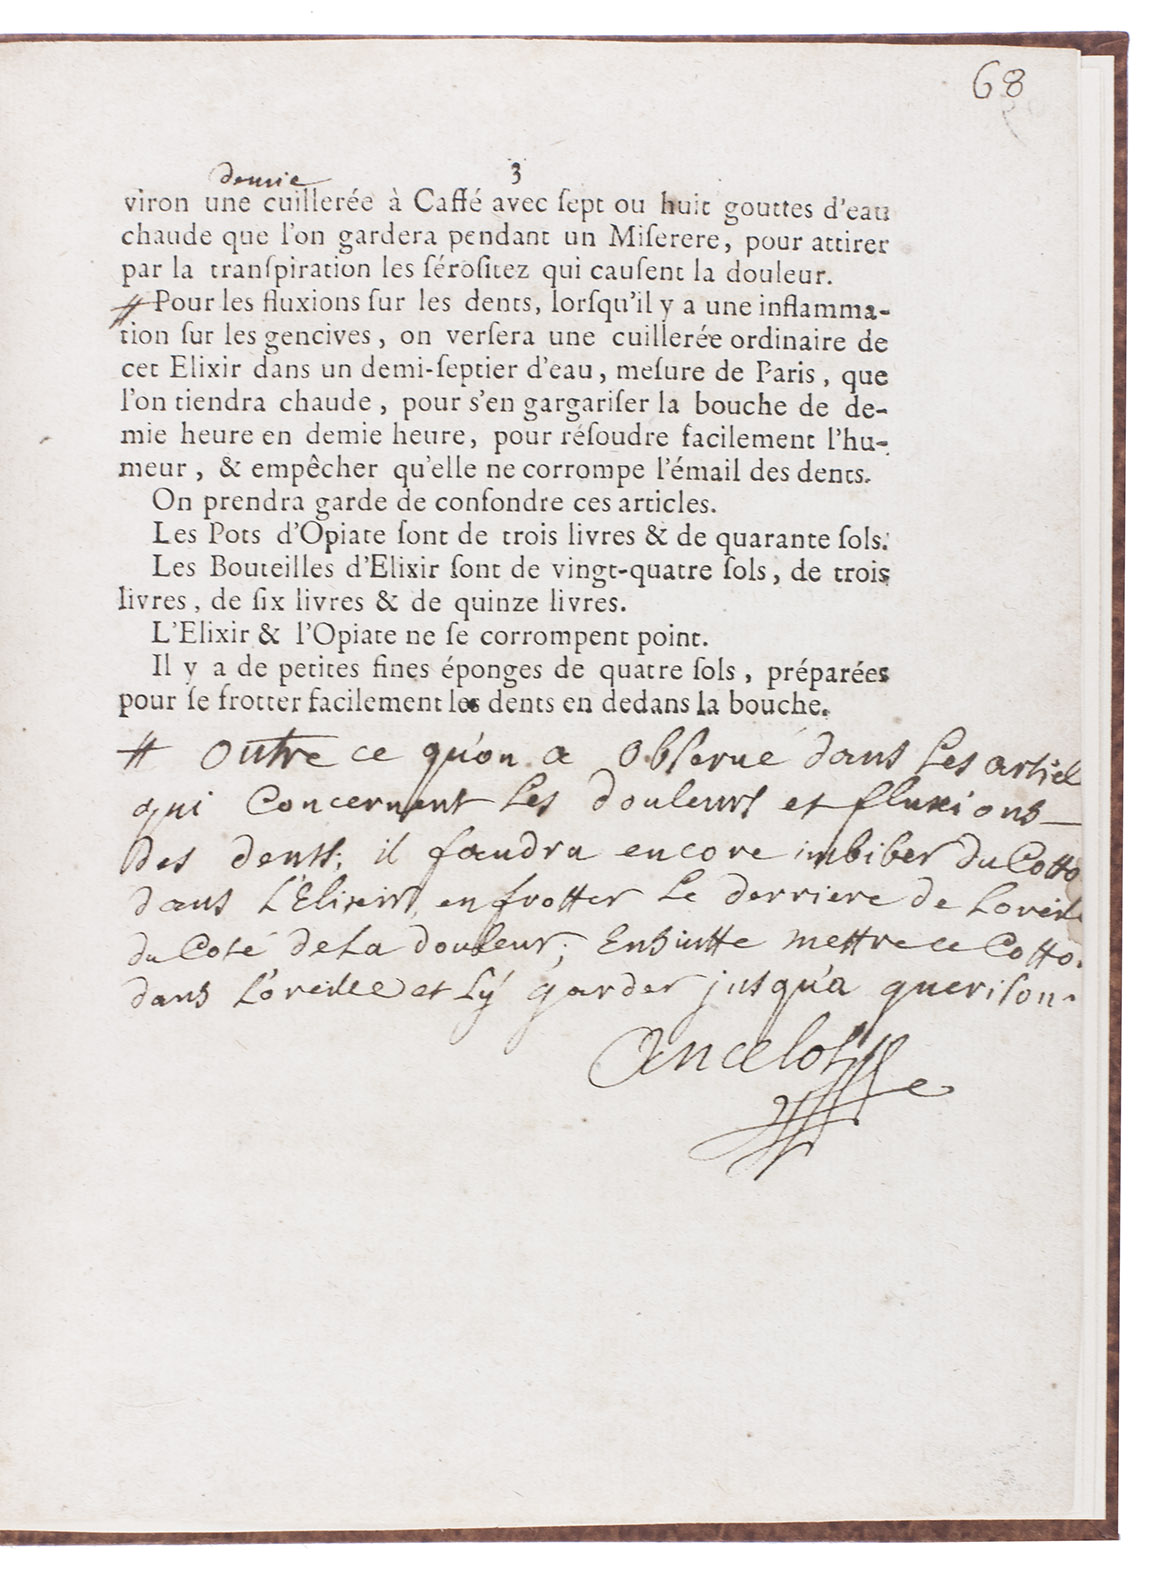 68
3
demie
viron une cuillerée à Caffé avec ſept ou huit gouttes d'eau
chaude que l'on gardera pendant un Miſerere, pour attirer
par la tranſpiration les ſéroſitez qui cauſent la douleur.
# Pour les fluxions ſur les dents, lorſqu'il y a une inflamma-
tion ſur les gencives, on verſera une cuillerée ordinaire de
cet Elixir dans un demi-ſeptier d'eau, meſure de Paris, que
l'on tiendra chaude, pour s'en gargariſer la bouche de de-
mie heure en demie heure, pour réſoudre facilement l'hu-
meur, & empêcher qu'elle ne corrompe l'émail des dents.
On prendra garde de confondre ces articles.
Les Pots d'Opiate ſont de trois livres & de quarante ſols.
Les Bouteilles d'Elixir ſont de vingt-quatre ſols, de trois
livres, de ſix livres & de quinze livres.
L'Elixir & l'Opiate ne ſe corrompent point.
Il y a de petites fines éponges de quatre ſols, préparées
pour ſe frotter facilement les dents en dedans la bouche.
# outre ce qu'on a obſerué dans les articl
qui Concernent les douleurs et fluxions
des dents; il faudra encore imbiber du Cotto
dans L'Elixir, en frotter le derriere de Loreil
du Coté de La douleur; Ensuitte mettre ce Cotto
dans L'oreille et Ly garder jusqu'a gueriſon.
Ancelot